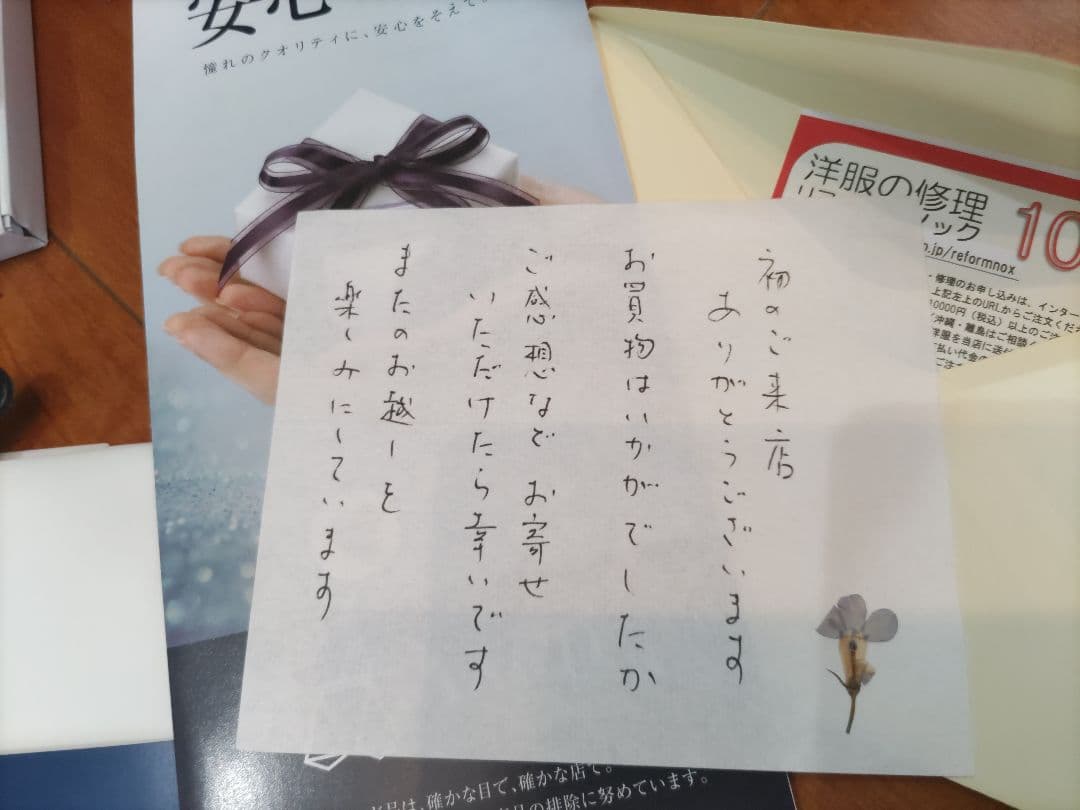 安心
憧れのクオリティに、安心をそえて。
洋服の修理
ック
10
.jp/reformnox
・修理のお申し込みは、インター
上記左上のURLからご注文くだ
10000円（税込）以上のご注
沖縄・離島はご相談
洋服を当店に送
払い代金の
初のご来店
ありがとうございます
お買物はいかがでしたか
ご感想など お寄せ
いただけたら幸いです
またのお越しを
楽しみにしています
品は、確かな目で、確かな店で。
品の排除に努めています。